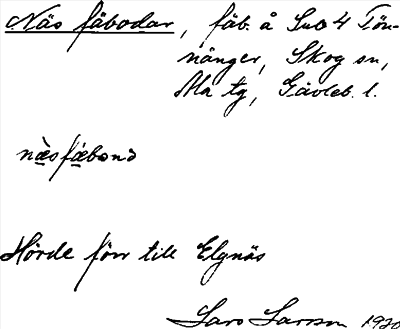 Näs fäbodar, fäb. å Sub 4 Tön-
nånger, Skog sn,
Ala tg, Gävleb. l.
næsfæbonɔ
Hörde förr till Elgnäs
Lars Larsson 1920